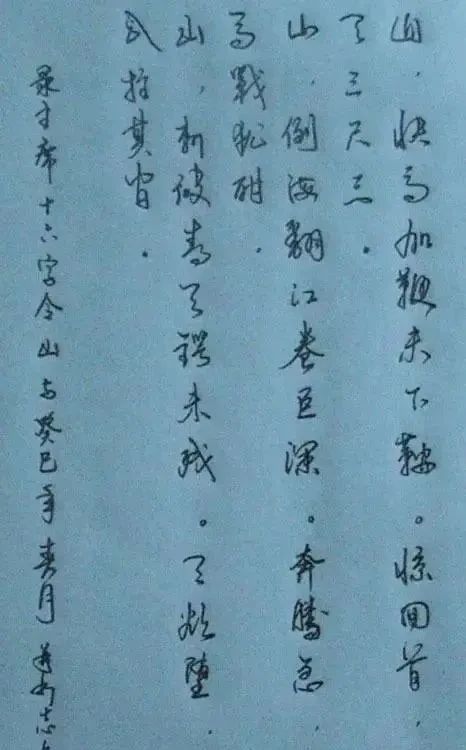 山，快马加鞭未下鞍。惊回首，
天三尺三。
山，倒海翻江卷巨澜。奔腾急，
马戰犹酣。
山，刺破青天锷未残。天欲堕，
以拄其间。
录主席十六字令山 于癸巳年春月 志